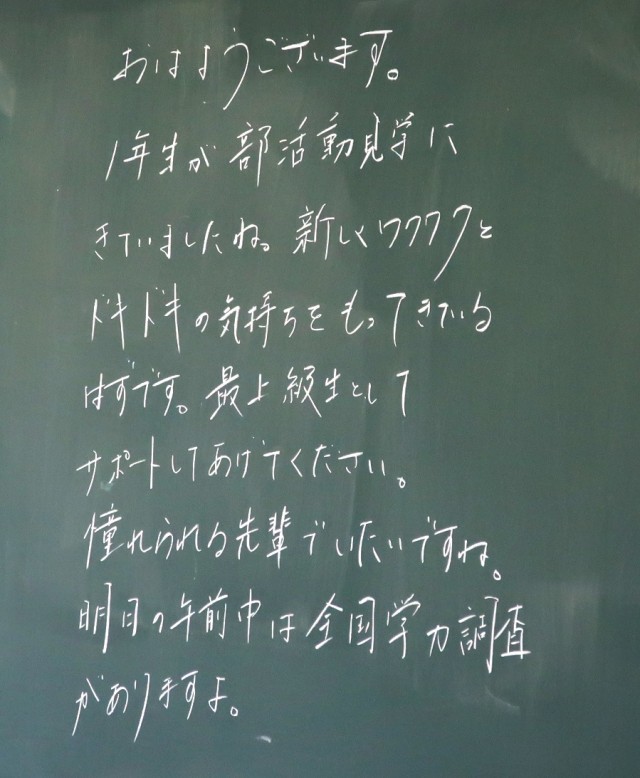 おはようございます。
1年生が部活動見学に
きていましたね。新しくワクワクと
ドキドキの気持ちをもってきている
はずです。最上級生として
サポートしてあげてください。
憧れられる先輩でいたいですね。
明日の午前中は全国学力調査
がありますよ。